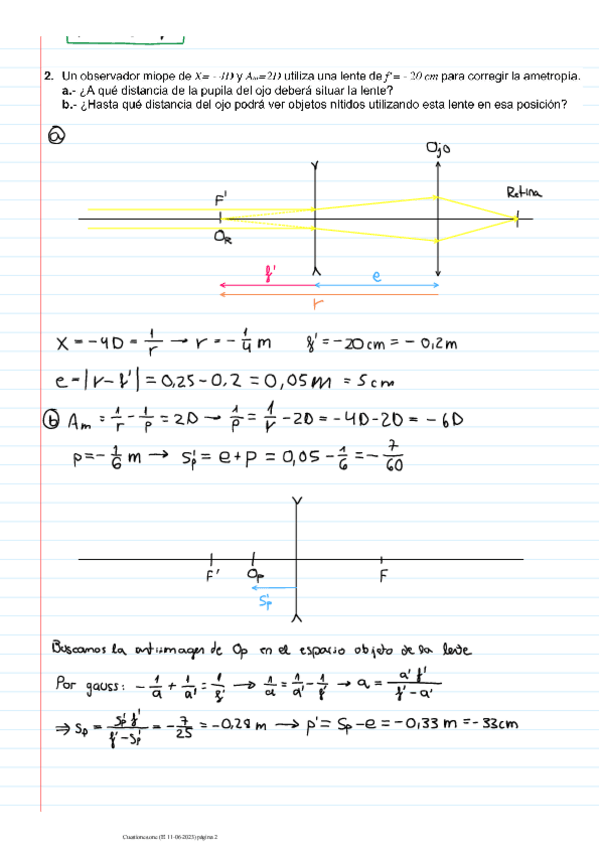 2. Un observador miope de X= - 4D y Am=2D utiliza una lente de f'= - 20 cm para corregir la ametropía.
a.- ¿A qué distancia de la pupila del ojo deberá situar la lente?
b.- ¿Hasta qué distancia del ojo podrá ver objetos nítidos utilizando esta lente en esa posición?
a
Ojo
F' Retina
OR
f' e
r
X = -4D = 1/r → r = -1/4 m f' = -20cm = -0,2m
e = |r-f'| = 0,25-0,2 = 0,05m = 5cm
b Am = 1/r - 1/p = 2D → 1/p = 1/r - 2D = -4D-2D = -6D
p = -1/6 m → s'p = e+p = 0,05 - 1/6 = -7/60
F' Op F
s'p
Buscamos la antiimagen de Op en el espacio objeto de la lente
Por gauss: -1/a + 1/a' = 1/f' → 1/a = 1/a' - 1/f' → a = a' f' / f'-a'
⇒ sp = s'p f' / f'-s'p = -7/25 = -0,28 m → p' = sp - e = -0,33 m = -33cm
Cuestiones.one (R 11-06-2025) página 2